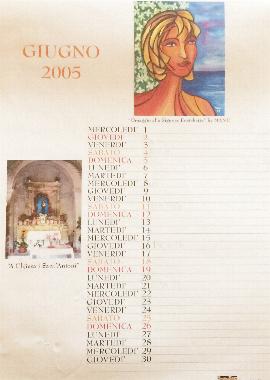 GIUGNO
2005
MERCOLEDI' 1
GIOVEDI' 2
VENERDI' 3
SABATO 4
DOMENICA 5
LUNEDI' 6
MARTEDI' 7
MERCOLEDI' 8
GIOVEDI' 9
VENERDI' 10
SABATO 11
DOMENICA 12
LUNEDI' 13
MARTEDI' 14
MERCOLEDI' 15
GIOVEDI' 16
VENERDI' 17
SABATO 18
DOMENICA 19
LUNEDI' 20
MARTEDI' 21
MERCOLEDI' 22
GIOVEDI' 23
VENERDI' 24
SABATO 25
DOMENICA 26
LUNEDI' 27
MARTEDI' 28
MERCOLEDI' 29
GIOVEDI' 30